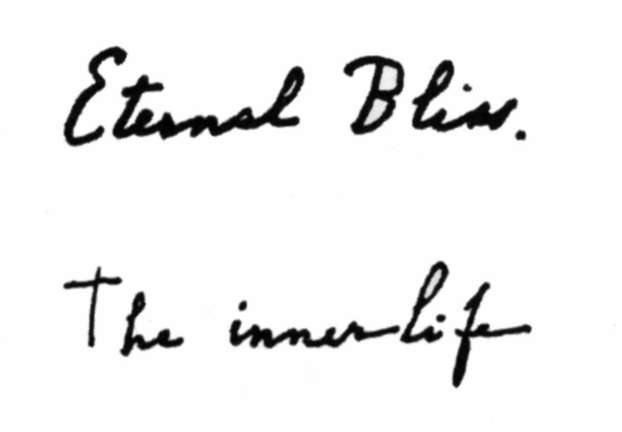 Eternal Bliss.
The inner life